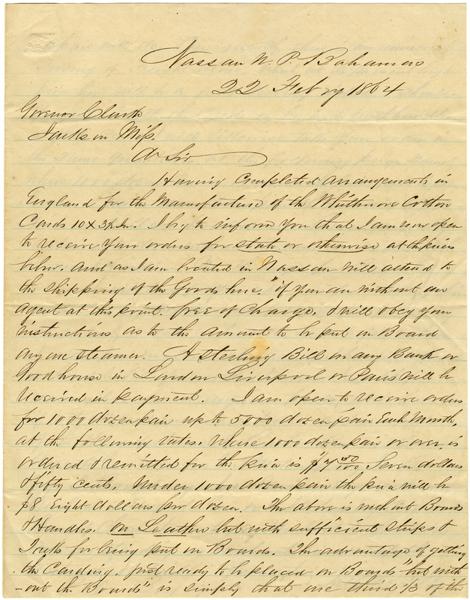 Nassau N. P. Bahamas
22 Febry 1864
Govenor Clark
Jackson Miss.
Dr Sir
Having Completed arrangements in
England for the Manufacture of the Whittmore Cotton
Cards 10 X 3½ in. I beg to inform you that I am now open
to receive your orders for state or otherwise at the prices
below. And as I am located in Nassau will attend to
the shipping of the Goods here, "if you are without an
agent at this point. free of Charge, I will obey your
instructions as to the amount to be put on Board
any one steamer. A sterling Bill on any Bank or
Good house in London Liverpool or Paris will be
received in payment. I am open to receive orders
for 1000 dozen pair up to 5000 dozen pair Each Month,
at the following rates. Where 1000 dozen pair or over is
ordered & remitted for the price is $7 50/100 Seven dollars
& fifty cents. Under 1000 dozen pair the price will be
$8 Eight dollars per dozen. The above is without Boards
& Handles. on Leather but with sufficient strips &
Tacks for being put on Boards. The advantage of getting
the Carding just ready to be placed on Boards "but with
-out the Boards" is simply that one third ⅓ of the